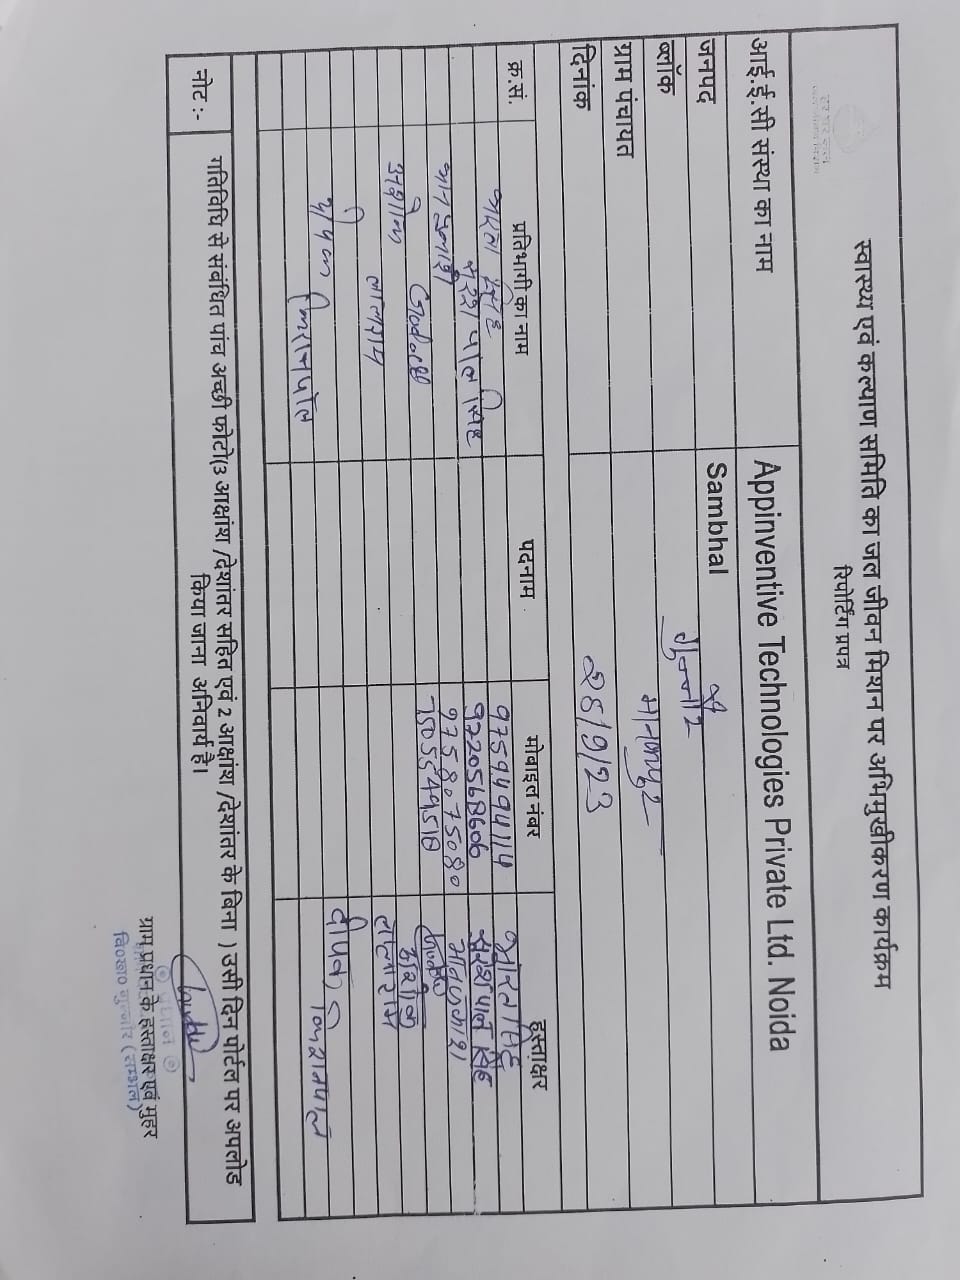 स्वास्थ्य एवं कल्याण समिति का जल जीवन मिशन पर अभिमुखीकरण कार्यक्रम
रिपोर्टिंग प्रपत्र
आई.ई.सी संस्था का नाम Appinventive Technologies Private Ltd. Noida
जनपद Sambhal
ब्लॉक गुन्नौर
ग्राम पंचायत मानकपुर
दिनांक
क्र.सं. प्रतिभागी का नाम पदनाम मोबाइल नंबर हस्ताक्षर
भारत सिंह 9759494114 भारत सिंह
सुरेश पाल सिंह 9720568606 सुरेश पाल सिंह
9758075080
अशोक अशोक
लालाराम लालाराम
नोट :- गतिविधि से संबंधित पांच अच्छी फोटो(3 आक्षांश /देशांतर सहित एवं 2 आक्षांश /देशांतर के बिना ) उसी दिन पोर्टल पर अपलोड
किया जाना अनिवार्य है।
प्रधान
ग्राम प्रधान के हस्ताक्षर एवं मुहर
वि०ख० गुन्नौर (सम्भल)